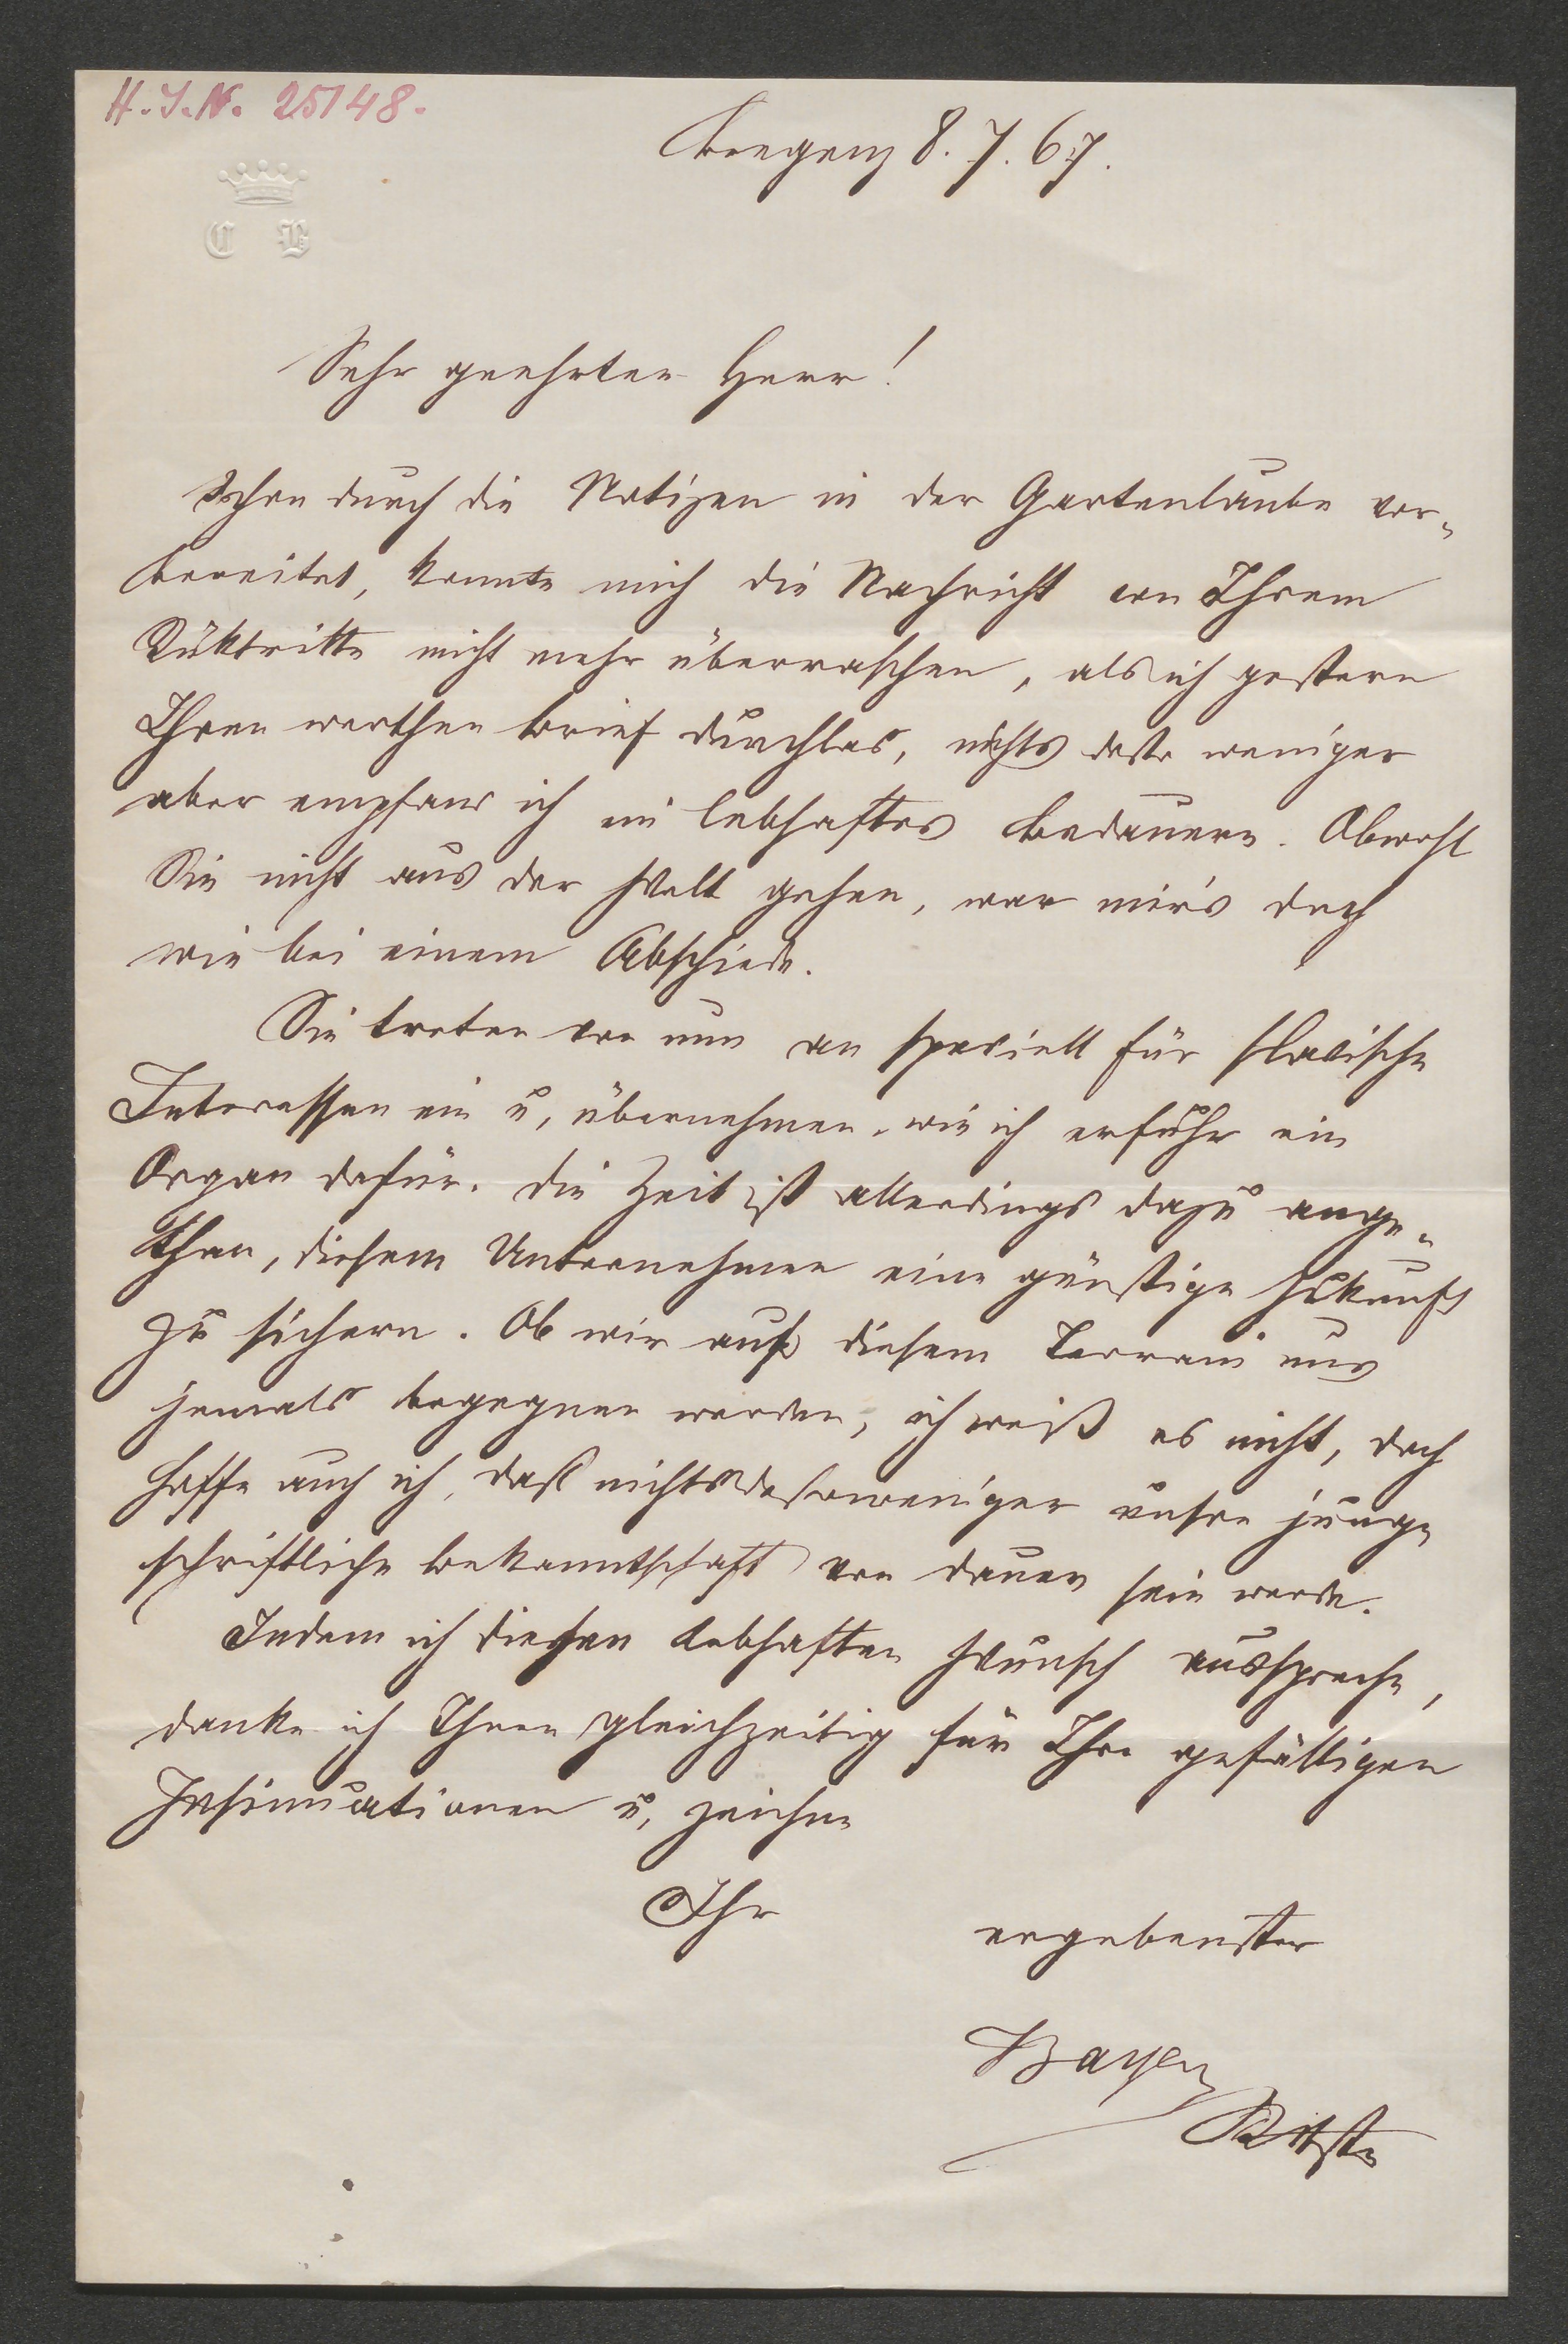 H.I.N. 25148.
Bregenz 8. 7. 67.
C B
Sehr geehrter Herr!
Schon durch die Notizen in der Gartenlaube vor-
bereitet, konnte mich die Nachricht von Ihrem
Rüktritte nicht mehr überraschen, als ich gestern
Ihren werthen Brief durchlas, nichts desto weniger
aber empfand ich ein lebhaftes Bedauern. Obwohl
Sie nicht aus der Welt gehen, war mir's doch
wie bei einem Abschiede.
Sie treten von nun an speciell für slavische
Interessen ein u, übernehmen, wie ich erfuhr ein
Organ dafür. Die Zeit ist allerdings dazu ange-
than, diesem Unternehmen eine günstige Zukunft
zu sichern. Ob wir auf diesem Terrain uns
jemals begegnen werden, ich weiß es nicht, doch
hoffe auch ich, daß nichtsdestoweniger unsre junge
schriftliche Bekanntschaft von Dauer sein werde.
Indem ich diesen lebhaften Wunsch ausspreche,
danke ich Ihnen gleichzeitig für Ihre gefälligen
Insinuationen u, zeichne
Ihr
ergebenster
Byr